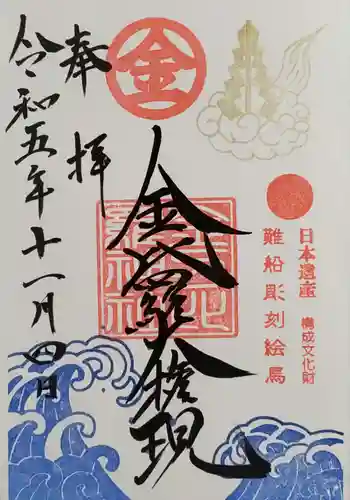 日本遺産
構成文化財
難船彫刻絵馬
金
金比羅大権現
奉拝
令和五年十一月四日